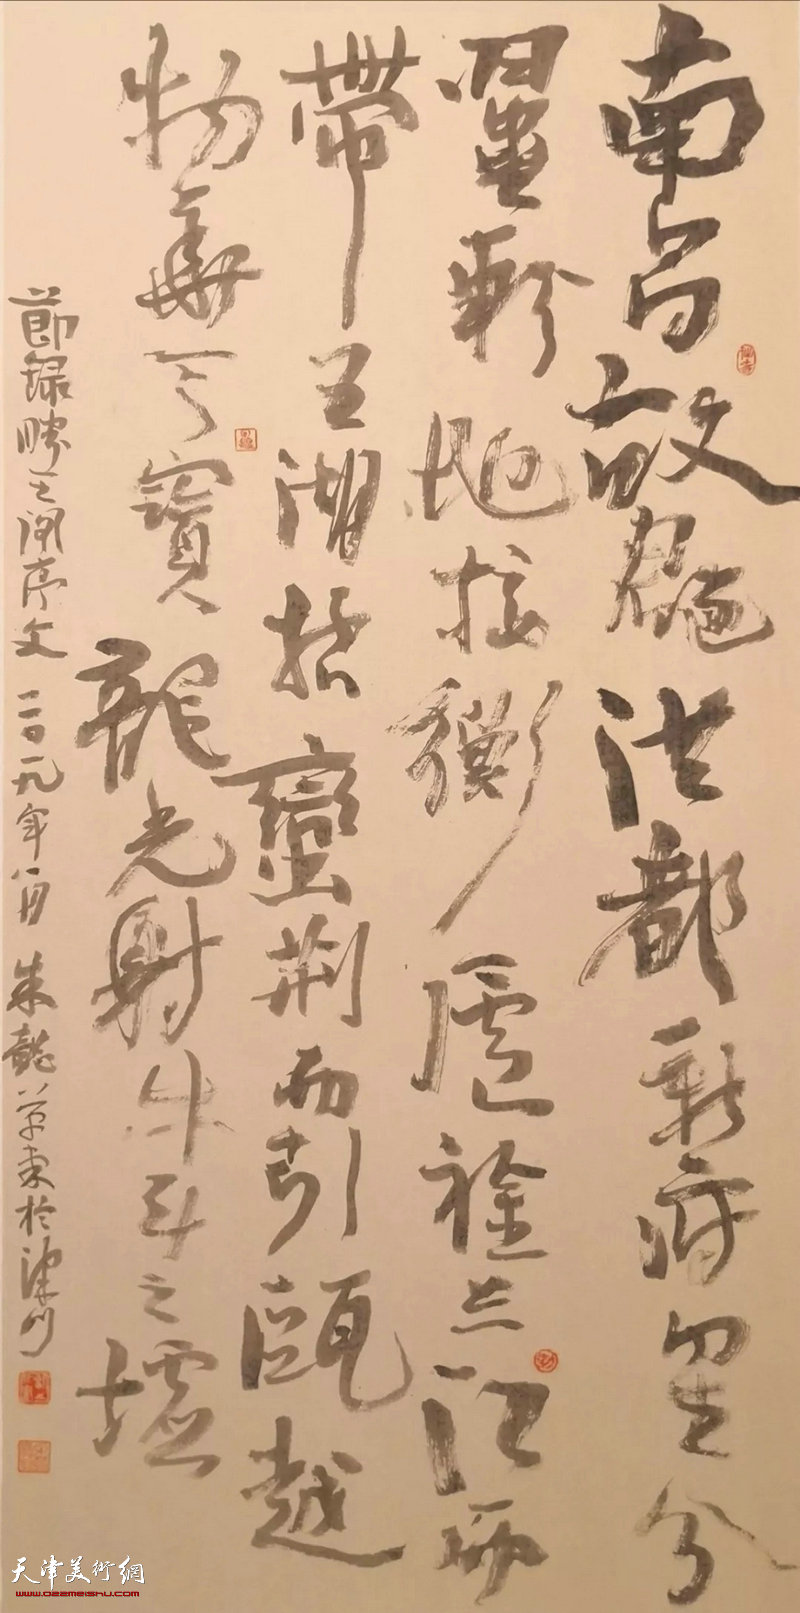 南昌故郡洪都新府星分
翼軫地接衡廬襟三江而
帶五湖控蠻荊而引甌越
物華天寶龍光射牛斗之墟
節録滕王閣序文 二〇一九年八月 朱懿草書於津門
天津美術網
www.022meishu.com